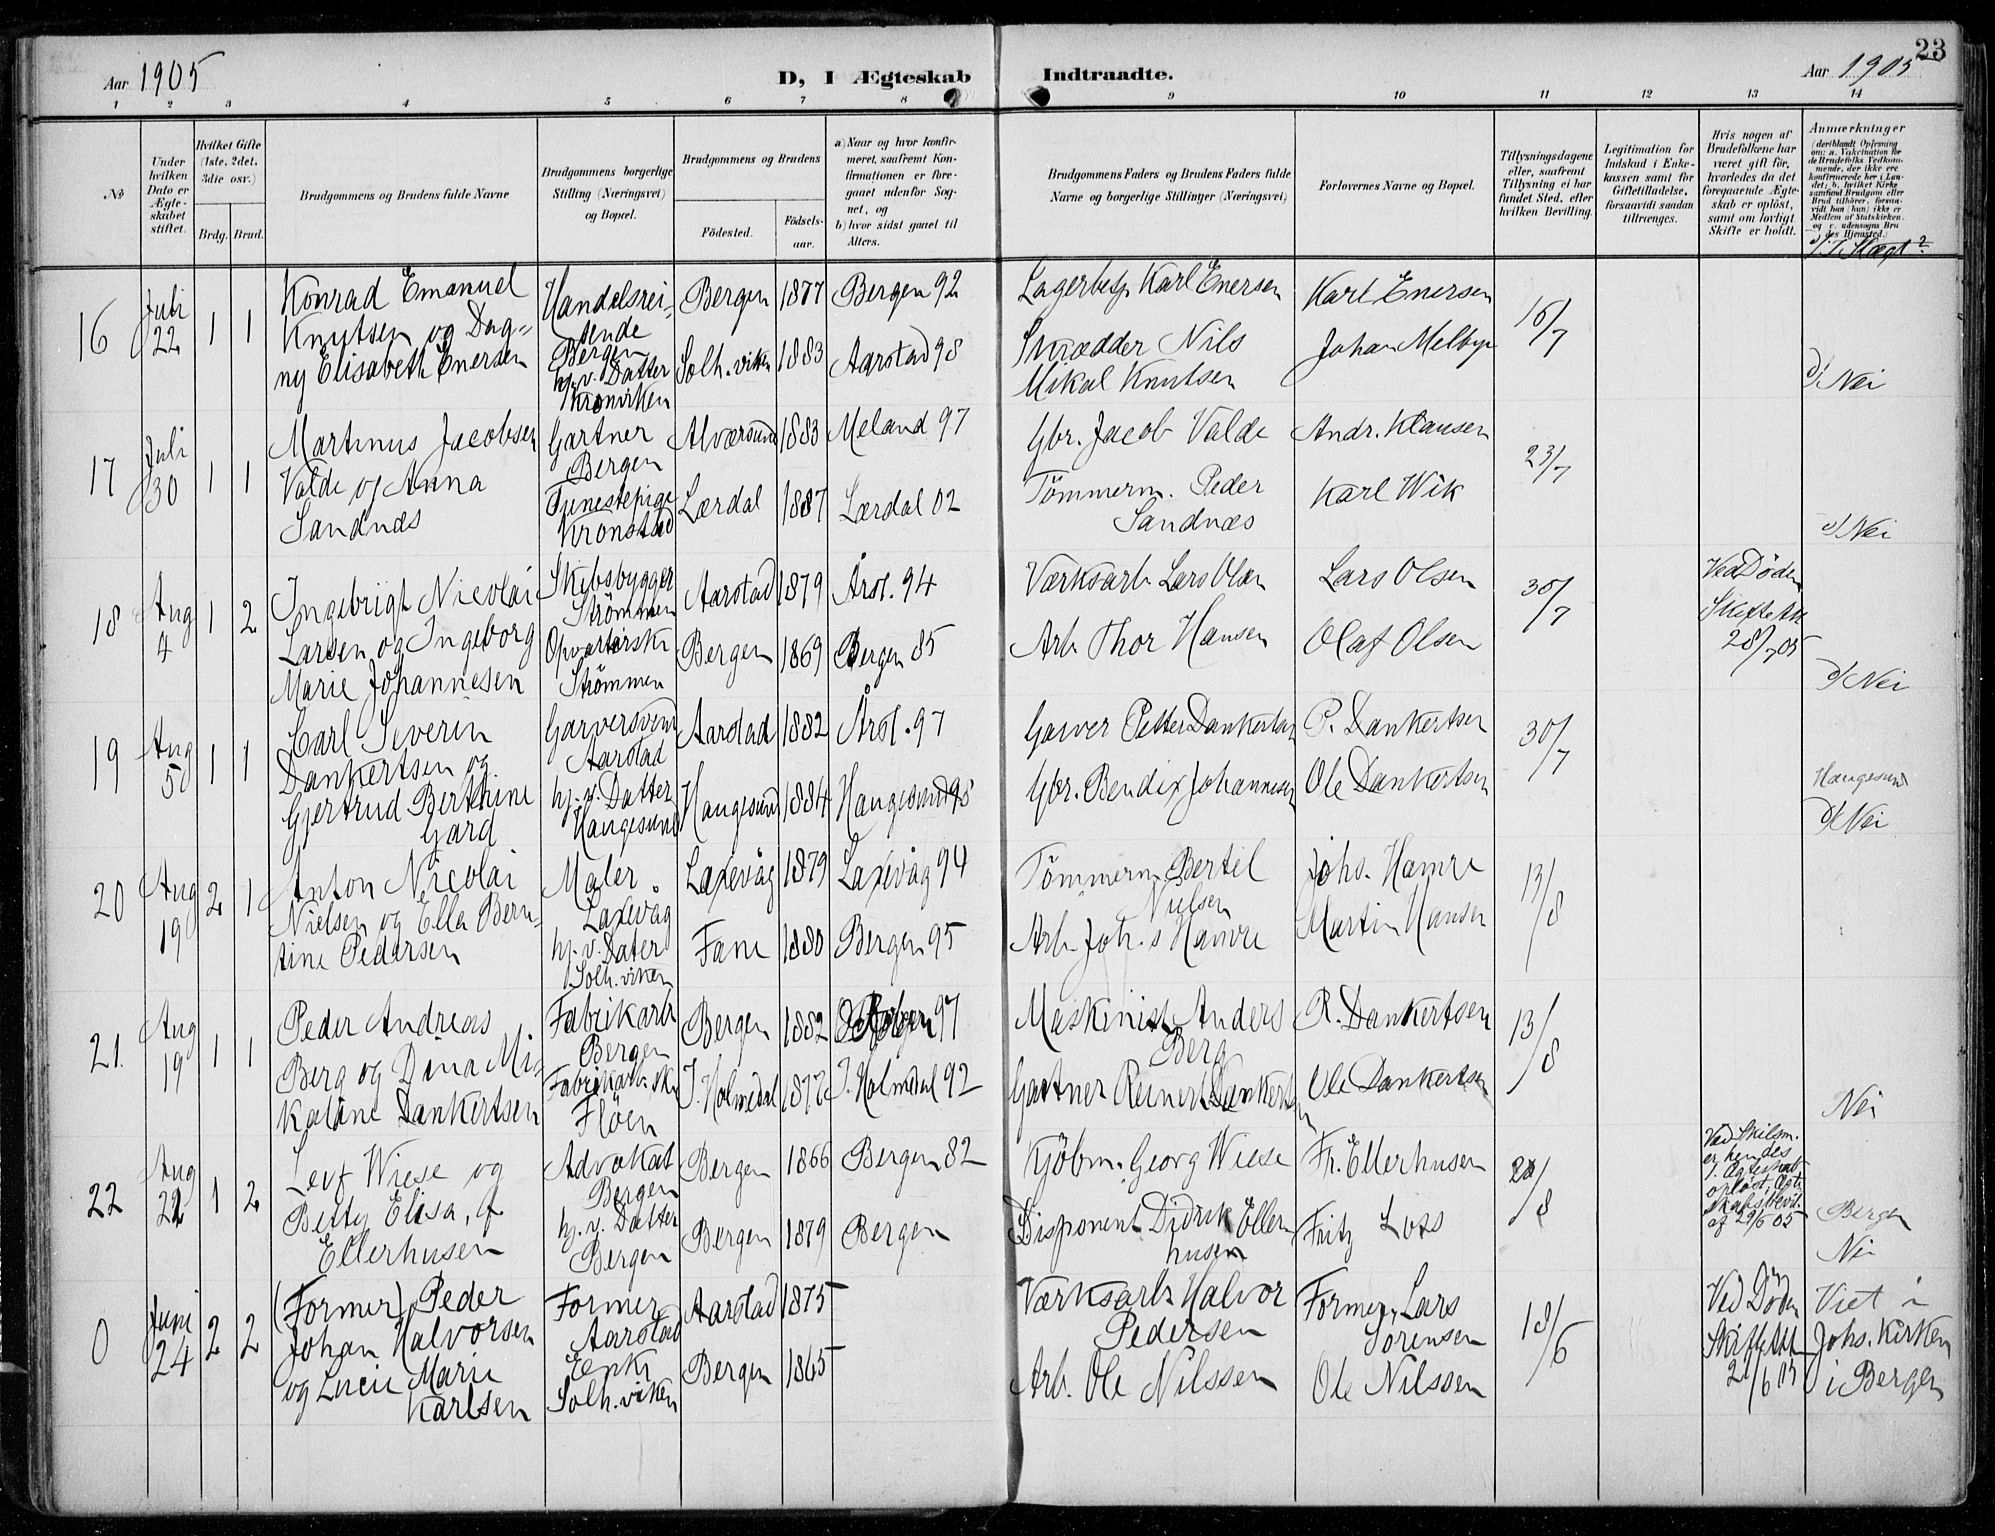 23
Aar 1905
D, I Ægteskab Indtraadte.
Aar 1905
1 2 3 4 5 6 7 8 9 10 11 12 13 14
№
Under hvilken Dato er Ægteskabet stiftet.
Hvilket Gifte (1ste, 2det, 3die osv.)
Brdg. Brud.
Brudgommens og Brudens fulde Navne
Brudgommens borgerlige Stilling (Næringsvei) og Bopæl.
Brudgommens og Brudens
Fødested.
Fødsels-aar.
a) Naar og hvor konfirmeret, saafremt Konfirmationen er foregaaet udenfor Sognet, og
b) hvor sidst gaaet til Alters.
Brudgommens Faders og Brudens Faders fulde Navne og borgerlige Stillinger (Næringsvei)
Forlovernes Navne og Bopæl.
Tillysningsdagene eller, saafremt Tillysning ei har fundet Sted, efter hvilken Bevilling.
Legitimation for Indskud i Enkekassen samt for Giftetilladelse, forsaavidt saadan tiltrænges.
Hvis nogen af Brudefolkene har været gift før, hvorledes da det foregaaende Ægteskab er opløst, samt om lovligt Skifte er holdt.
Anmærkninger
16
Juli 22
1 1
Konrad Emanuel
Knutsen og Dag-
ny Elisabeth Enersen
Handelsrei-
sende
Bergen
hj.v. Datter
Kronviken
Bergen 1877 Bergen 92
Solh.viken 1883 Aarstad 98
Lagerbesj. Karl Enersen
Skrædder Nils
Mikal Knutsen
Karl Enersen
Johan Melbye
16/7
d/ Nei
17
Juli 30
1 1
Martinus Jacobsen
Valde og Anna
Sandnæs
Gartner
Bergen
Tjenestepige
Kronstad
Alværsund 1883 Meland 97
Lærdal 1887 Lærdal 02
Gbr. Jacob Valde
Tömmerm. Peder
Sandnæs
Andr. Klausen
Karl Wik
23/7
d/ Nei
18
Aug 4
1 2
Ingebrigt Nicolai
Larsen og Ingeborg
Marie Johannesen
Skibsbygger
Strömmen
Opvarterske
Strömmen
Aarstad 1879 Årst. 94
Bergen 1869 Bergen 85
Værksarb. Lars Olsen
Arb. Thor Hansen
Lars Olsen
Olaf Olsen
30/7
Ved Döden
Skifteatt
28/7 05
d/ Nei
19
Aug 5
1 1
Carl Severin
Dankertsen og
Gjertrud Berthine
Gard
Garversvend
Aarstad
hj.v. Datter
Haugesund
Aarstad 1882 Årst. 97
Haugesund 1884 Haugesund 98
Garver Petter Dankertsen
Gbr. Bendix Johannesen
P. Dankertsen
Ole Dankertsen
30/7
Haugesund
d/ Nei
20
Aug 19
2 1
Anton Nicolai
Nielsen og Ella Bern-
tine Pedersen
Maler
Laxevåg
hj.v. Dater
Solh.viken
Laxevåg 1879 Laxevåg 94
Fane 1880 Bergen 95
Tömmerm. Bertil
Nielsen
Arb. Joh.s Hamre
Johs. Hamre
Martin Hansen
13/8
21.
Aug 19
1 1
Peder Andreas
Berg og Dina Mi-
kaline Dankertsen
Fabrikarb
Bergen
Fabrikarb.ske
Flöen
Bergen 1882 97
I. Holmedal 1877 I. Holmedal 92
Maskinist Anders
Berg
Gartner Reinert Dankertsen
R. Dankertsen
Ole Dankertsen
13/8
Nei
22
Aug
1 2
Leif Wiese og
Betty Elisa, f
Ellerhusen
Advokat
Bergen
hj.v. Datter
Bergen
Bergen 1866 Bergen 82
Bergen 1879 Bergen
Kjöbm. Georg Wiese
Disponent Didrik Eller-
husen
Fr. Ellerhusen
Fritz Loss
20/8
Ved Skilsm.
er hendes
1. Ægteskab
oplöst, Ægte-
skabsbevil.
af 29/6 05
Bergen
Nei
0
Juni 24
2 2
(Former) Peder
Johan Halvorsen
og Lucie Marie
Karlsen
Former
Aarstad
Enke
Solh.viken
Aarstad 1875
Bergen 1865
Værksarb. Halvor
Pedersen
Arb. Ole Nilssen
Former Lars
Sörensen
Ole Nilssen
18/6
Ved Döden
Skifteatt
21/6 05
Viet i
Johs. Kirken
i Bergen